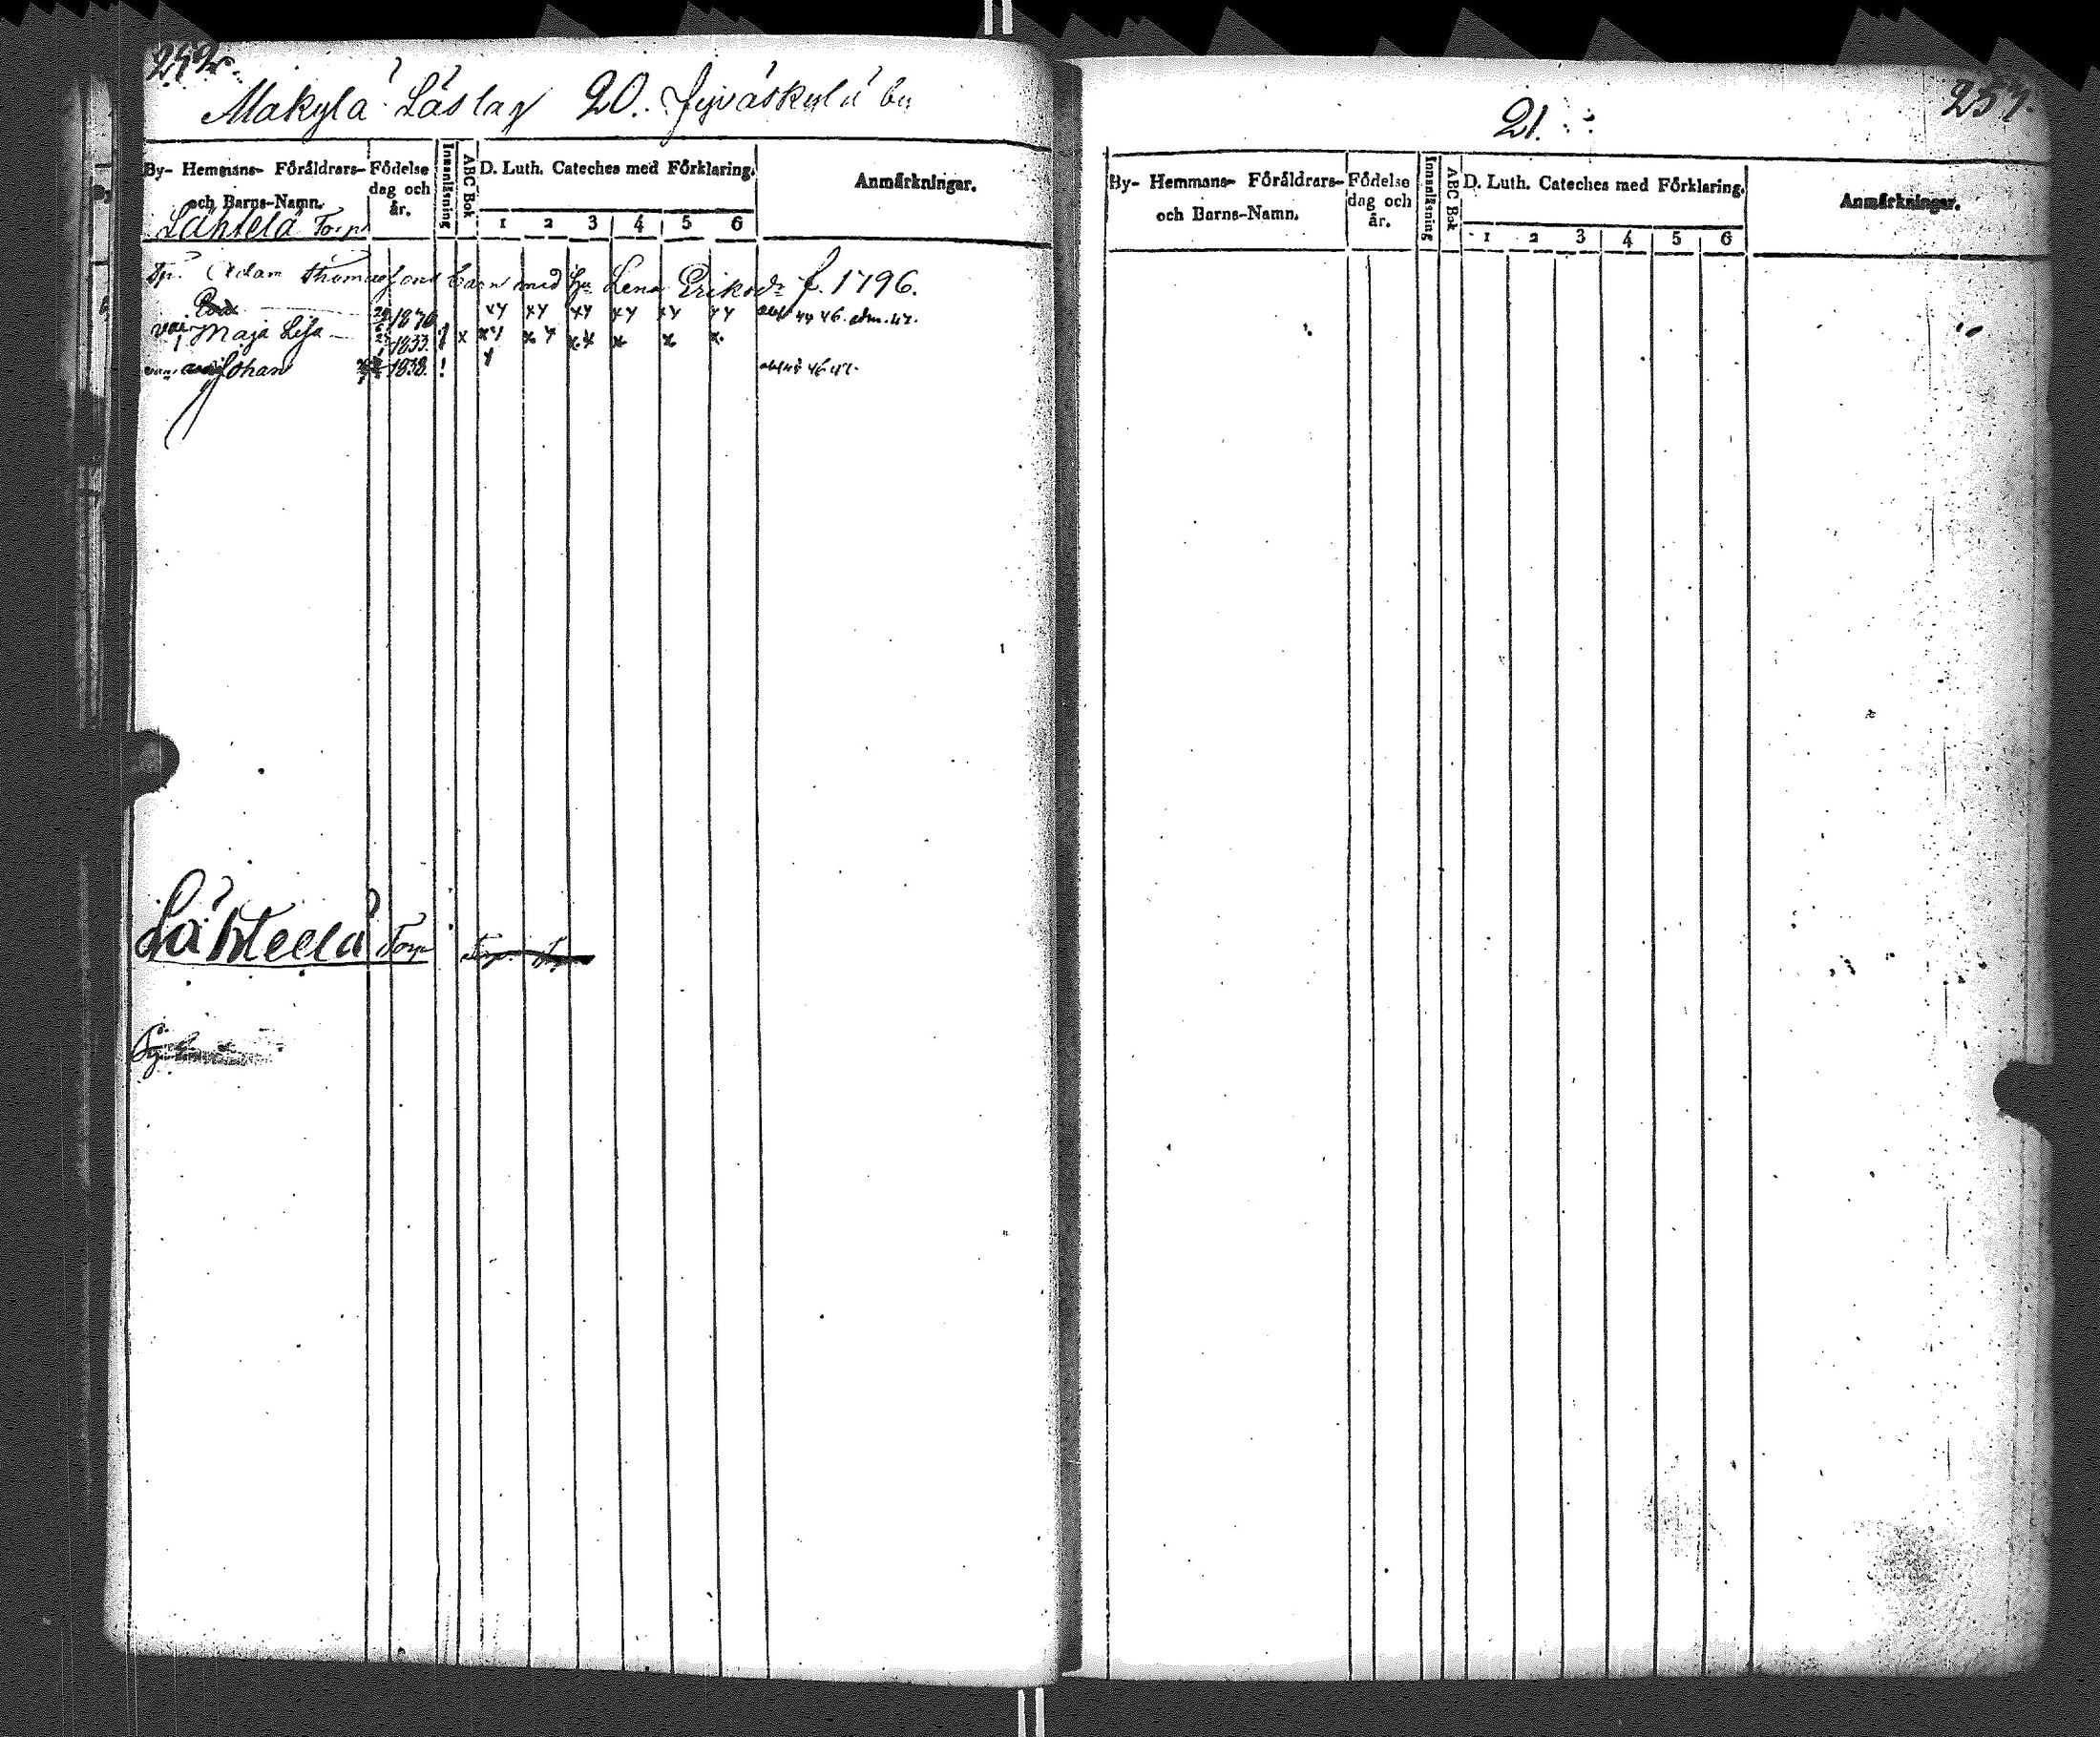 252.
Makylä Läslag 20. Jyväskylä by
By- Hemmans- Föräldrars- och Barns-Namn.
Födelse dag och år.
Innanläsning
ABC Bok
D. Luth. Cateches med Förklaring.
1 2 3 4 5 6
Anmärkningar.
Lähtelä Torp
Tp. Adam Thomassons barn med hu Lena Eriksdr f. 1796.
1830 xy xy xy xy xy yy 44 46. adm. 47.
Maja Lisa 1833. x xy x y x x x x x.
Johan 1838. ! y 46 47.
Lähtelä Torp
253.
21.
By- Hemmans- Föräldrars- och Barns-Namn.
Födelse dag och år.
Innanläsning
ABC Bok
D. Luth. Cateches med Förklaring.
1 2 3 4 5 6
Anmärkningar.